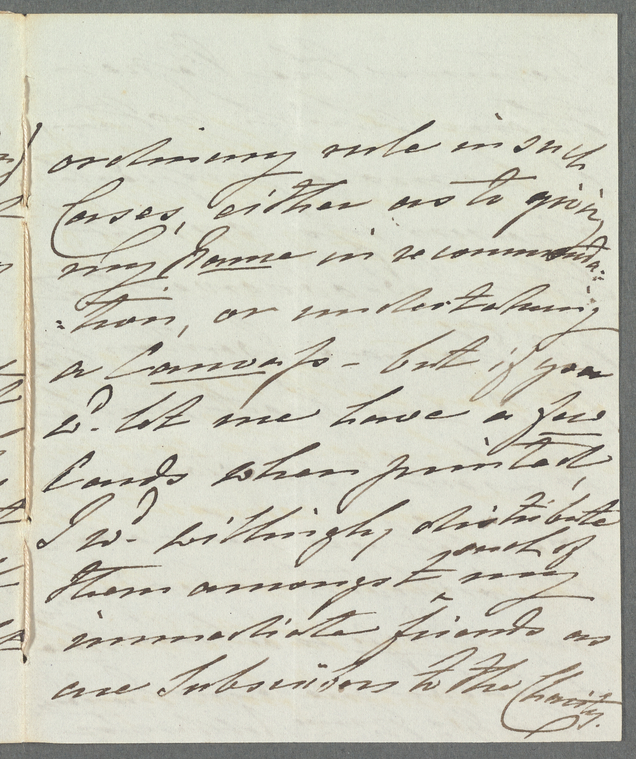 ordinary rule in such
Cases, either as to giving
my Name in recommenda:
:tion, or undertaking
a Canvass - but if you
wd. let me have a few
Cards when printed,
I wd. willingly distribute
them amongst such of my
immediate friends as
are Subscribers to the Charity.